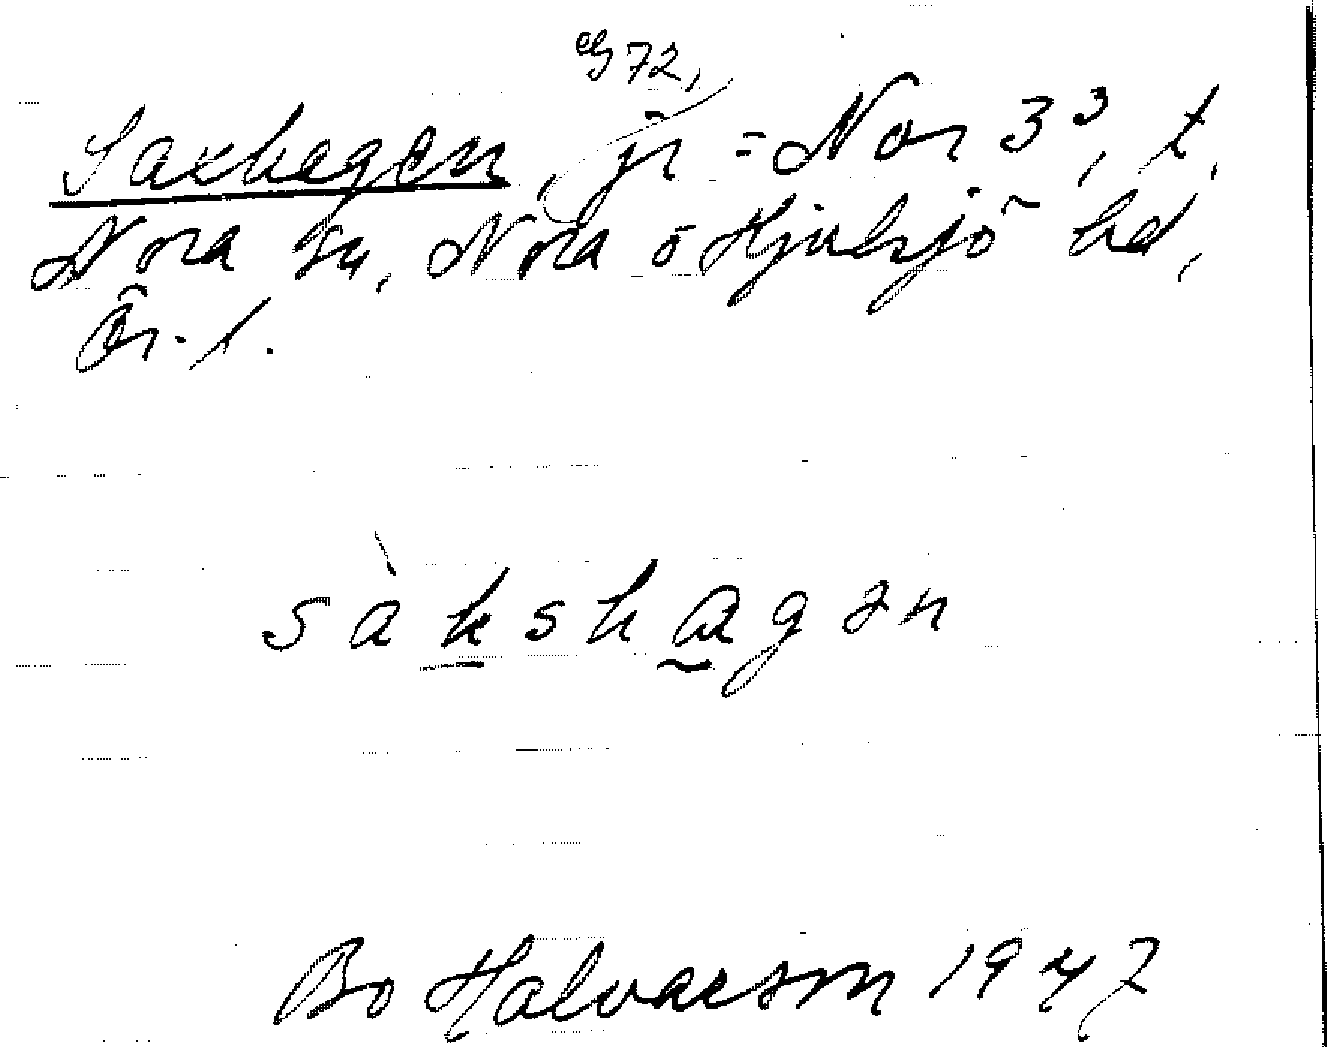 eg 72,
Saxhagen, jr = Nor 3³, t.
Nora sn, Nora o Hjulsjö hd,
Ör. l.
sàkshagən
Bo Halvarson 1947